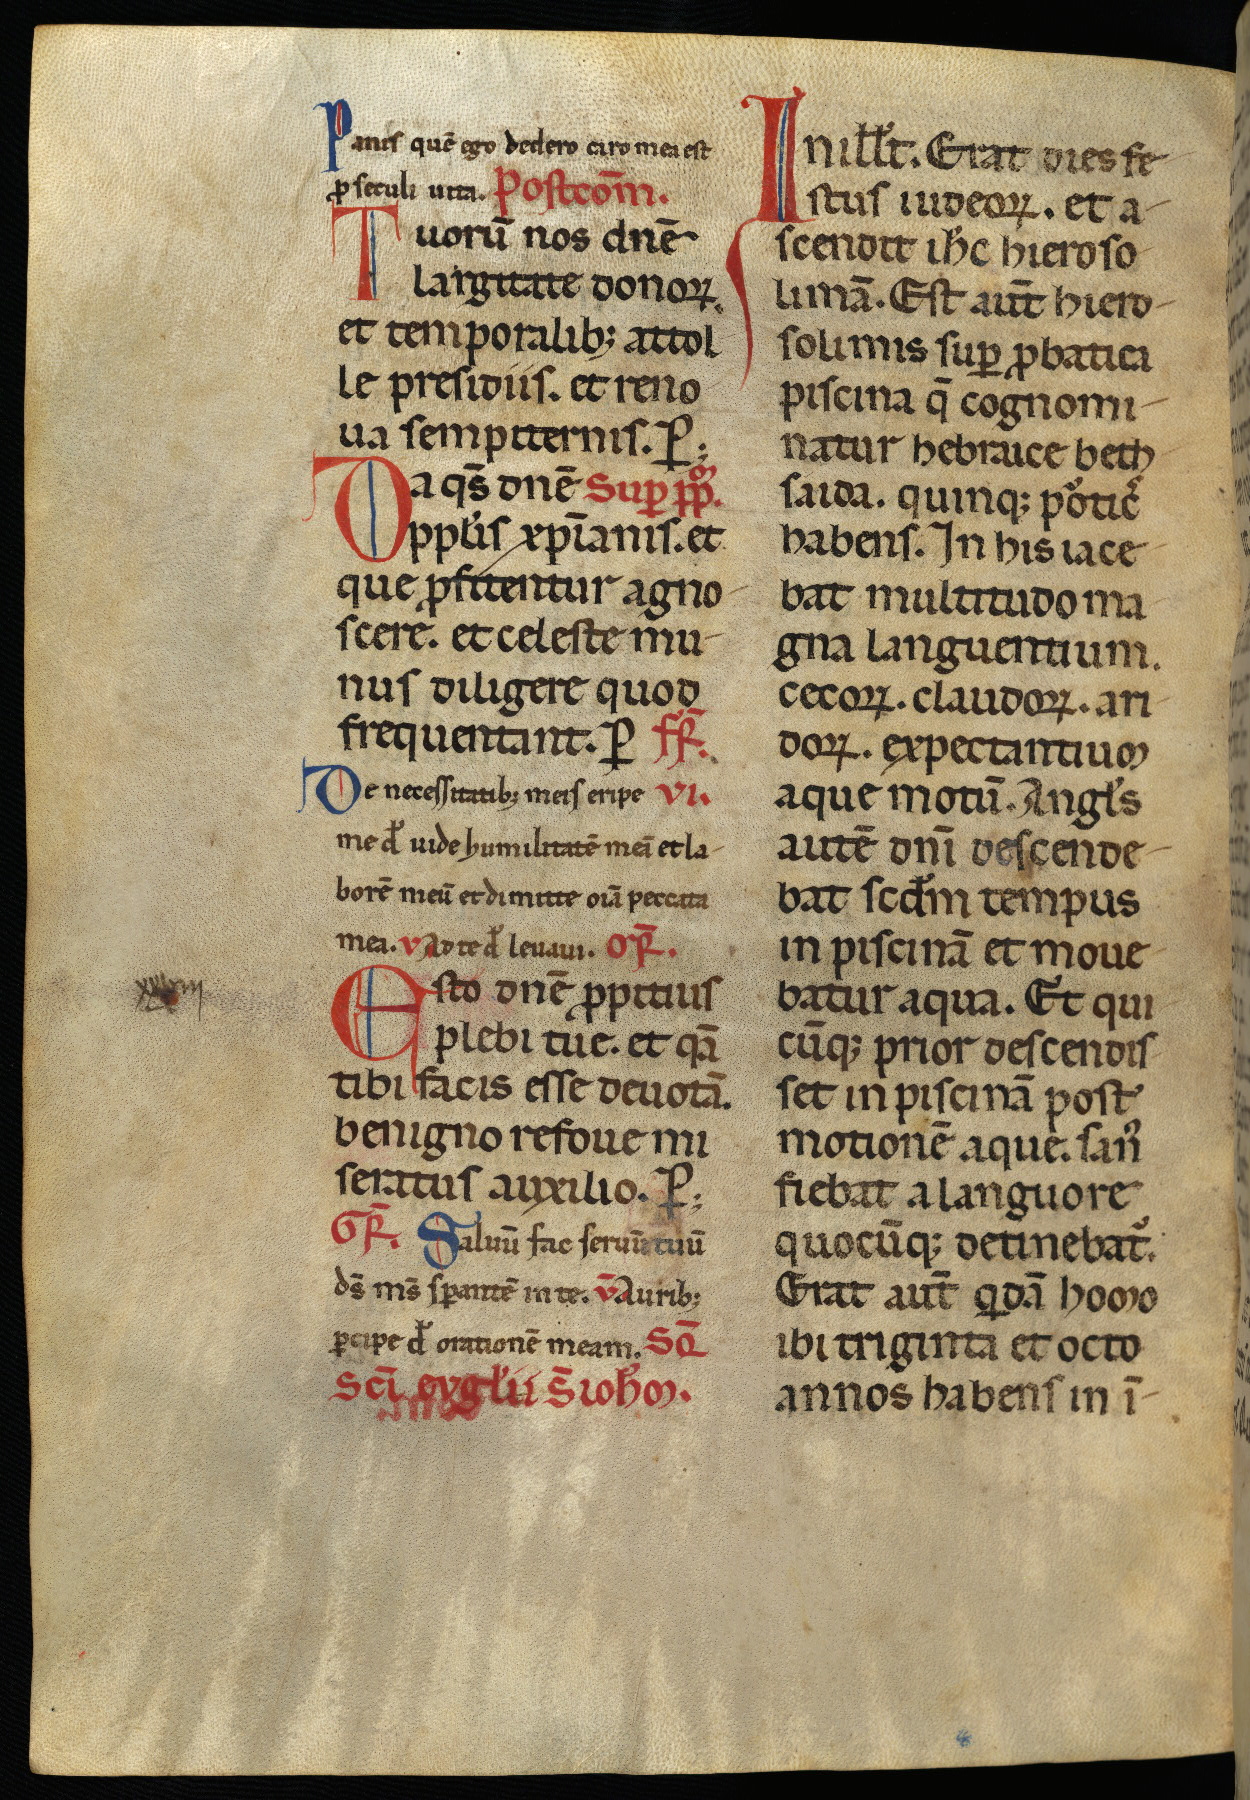 Panis quē ego dedero caro mea est
ꝓ seculi uita. Postcōm.
Tuorū nos dn̄e
largitate donoꝝ.
et temporalib; attol
le presidiis. et reno
ua sempiternis. P̱;
Da qs̄ dn̄e Suꝑ pp̄lm.
pplis xp̄ianis. et
que ꝓfitentur agno
scere. et celeste mu
nus diligere quod
frequentant. P̱ fr̄.
De necessitatib; meis eripe vi.
me d̄ uide humilitatē meā et la
borē meū et dimitte oīa peccata
mea. v Ad te d̄ leuaui. or̄.
Esto dn̄e ꝓpitius
plebi tue. et quā
tibi facis esse deuotā.
benigno refoue mi
seratus auxilio. P̱;
Gr̄. Saluū fac seruū tuū
ds̄ ms̄ sperantē in te. v̄ Aurib;
ꝑcipe d̄ orationē meam. Sq̄
sc̄i eugl'ii s̄ ioh̄m.
xxiiii
In ill't. Erat dies fe
stus iudeoꝝ. et a
scendit ih̄c hieroso
limā. Est aūt hiero
solimis suꝑ ꝓbatica
piscina q̄ cognomi
natur hebraice beth
saida. quinq; porticꝰ
habens. In his iace
bat multitudo ma
gna languentium.
cecoꝝ. claudoꝝ. ari
doꝝ. expectantium
aque motū. Angl's
autē dn̄i descende
bat scd̄m tempus
in piscinā et moue
batur aqua. Et qui
cūq; prior descendis
set in piscinā post
motionē aque. sanꝰ
fiebat a languore
quocūq; detinebat᷑.
Erat aūt q̇dā homo
ibi triginta et octo
annos habens in ī